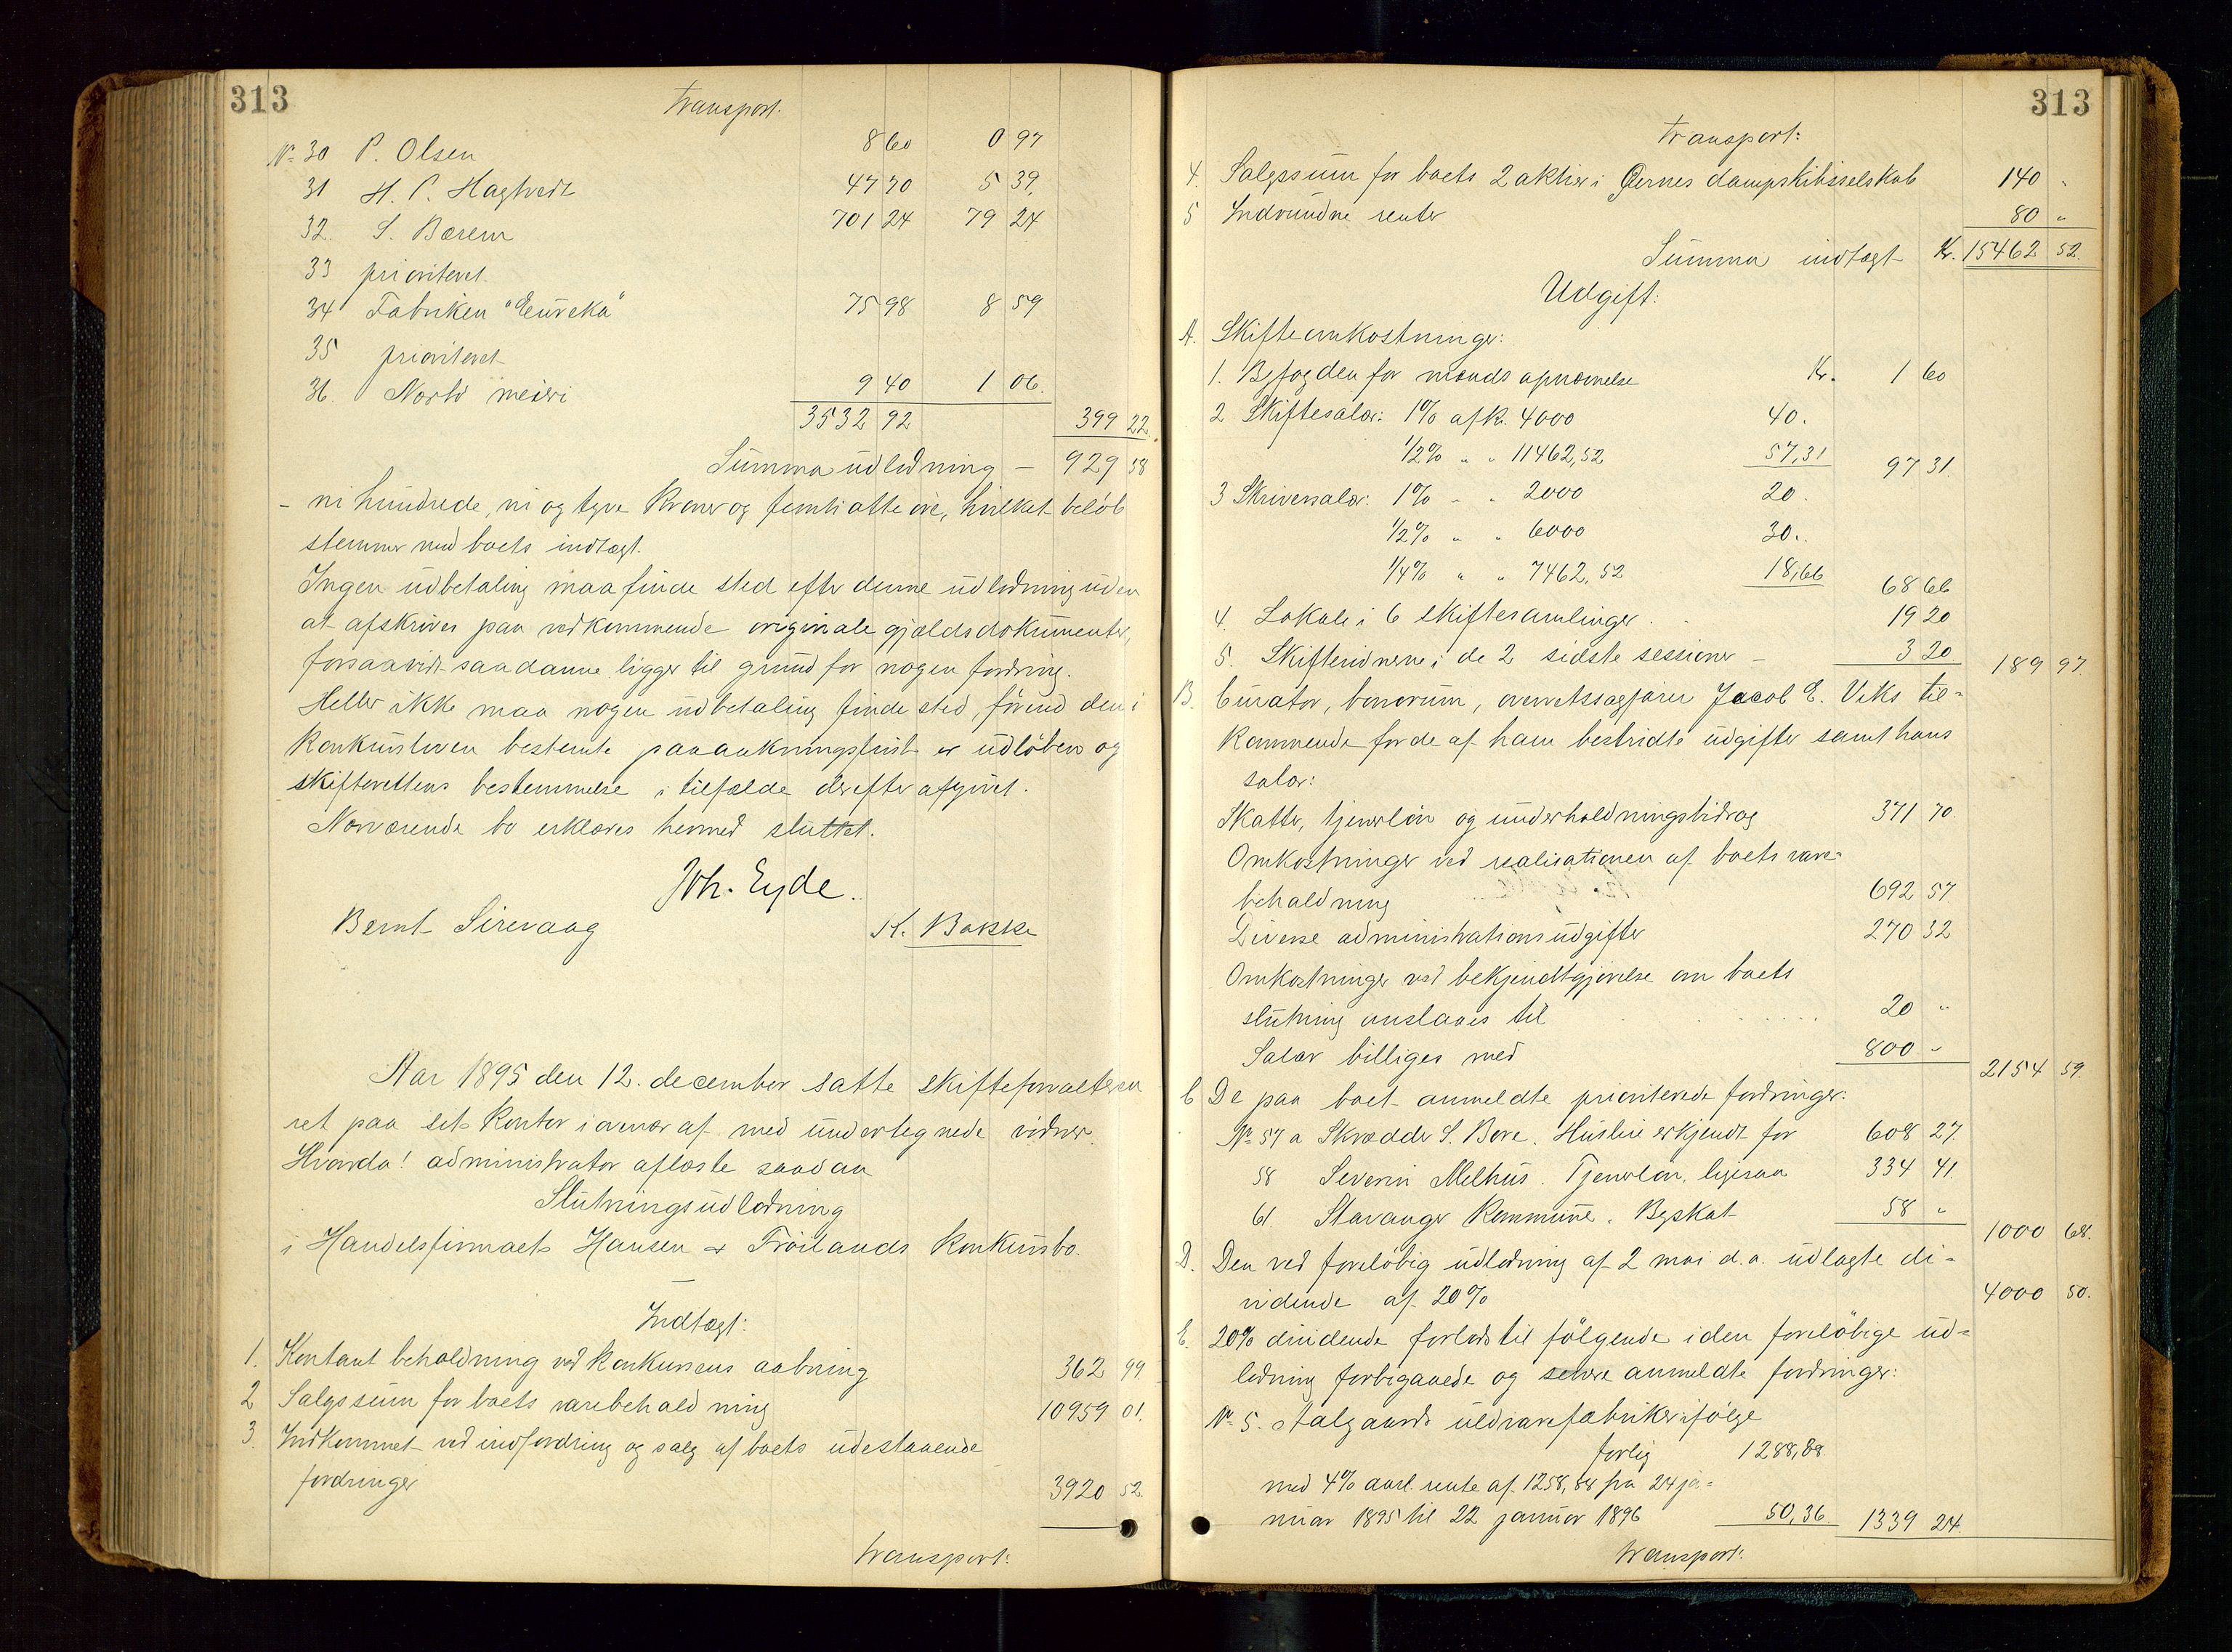 313
Transport.
No 30 P. Olsen 8 60 0 97
31 H. P. Hagtvedt 47 70 5 39.
32. S. Bærem 701 24 79 24
33 prioriteret.
34 Fabriken "Eureka" 75 98 8 59
35 prioriteret
36. Norbø meieri 9 40 1 06.
3532 92 399 22.
Summa udlodning — 929 58
- ni hundrede, ni og tyve kroner og femti otte øre, hvilket beløb
stemmer med boets indtægt.
Ingen udbetaling maa finde sted efter denne udlodning uden
at afskrives paa vedkommende originale gjældsdokumenter,
forsaavidt saadanne ligger til grund for nogen fordring.
Heller ikke maa nogen udbetaling finde sted, førend den i
konkursloven bestemte paaankningsfrist er udløben og
skifterettens bestemmelse i tilfælde derefter afgivet.
Nærværende bo erklæres hermed sluttet.
Joh. Eyde.
Bernt Sirevaag K. Bakke
Aar 1895 den 12. december satte skifteforvalteren
ret paa sit kontor i overvær af med undertegnede vidner.
Hvorda! administrator aflæste saadan
Slutningsudlodning
i Handelsfirmaet Hansen & Frøilands konkursbo.
Indtægt:
1. Kontant beholdning ved konkursens aabning 362 99
2 Salgssum for boets varebehold ning 10959 01.
3. Indkommet ved indfordring og salg af boets udestaaende
fordringer 3920 52.
transport:
313
Transport:
4. Salgssum for boets 2 aktier i Øernes dampskibsselskab 140 "
5 Indvundne renter 80 "
Summa indtægt Kr. 15462 52.
Udgift:
A. Skifteomkostninger:
1. Byfogden for mænds opnævnelse Kr. 1 60
2 Skiftesalær: 1% af k. 4000 40.
1/2% " " 11462,52 57,31 97 31.
3 Skriversalær: 1% " " 2000 20.
1/2% " " 6000 30..
1/4% " " 7462,52 18,66 68 66
4. Lokale i 6 skiftesamlinger. 19 20
5. Skiftevidnerne i de 2 sidste sessioner — 3 20 189 97.
B. Curator, bonorum, overretssagfører Jacob E. Veks til-
kommende for de af ham bestridte udgifter samt hans
salær:
Skatter, tjenerløn og underholdningsbidrag 371 70.
Omkostninger ved realisationen af boets vare-
beholdning 692 57
Diverse administrationsudgifter 270 32
Omkostninger ved bekjendtgjørelse om boets
slutning anslaaes til 20 "
Salær billiges med 800 " 2154 59.
C De paa boet anmeldte prioriterede fordringer:
No 57 a Skrædder S. Bore. Husleie erkjendt for 608 27.
58 Severin Melhus. Tjenerløn, ligesaa 334 41.
61 Stavanger kommune. Byskat 58 " 1000 68.
D. Den ved foreløbig udlodning af 2 mai d.a. udlagte di-
vidende af 20% 4000 50.
E. 20% dividende forlods til følgende i den foreløbige ud-
lodning forbigaaede og senere anmeldte fordringer:
No 5. Aalgaards uldvarefabriker ifølge
forlig 1288,88
med 4% aarl. rente af 1258,88 fra 24 ja-
nuar 1895 til 22 januar 1896 50,36 1339 24.
transport: